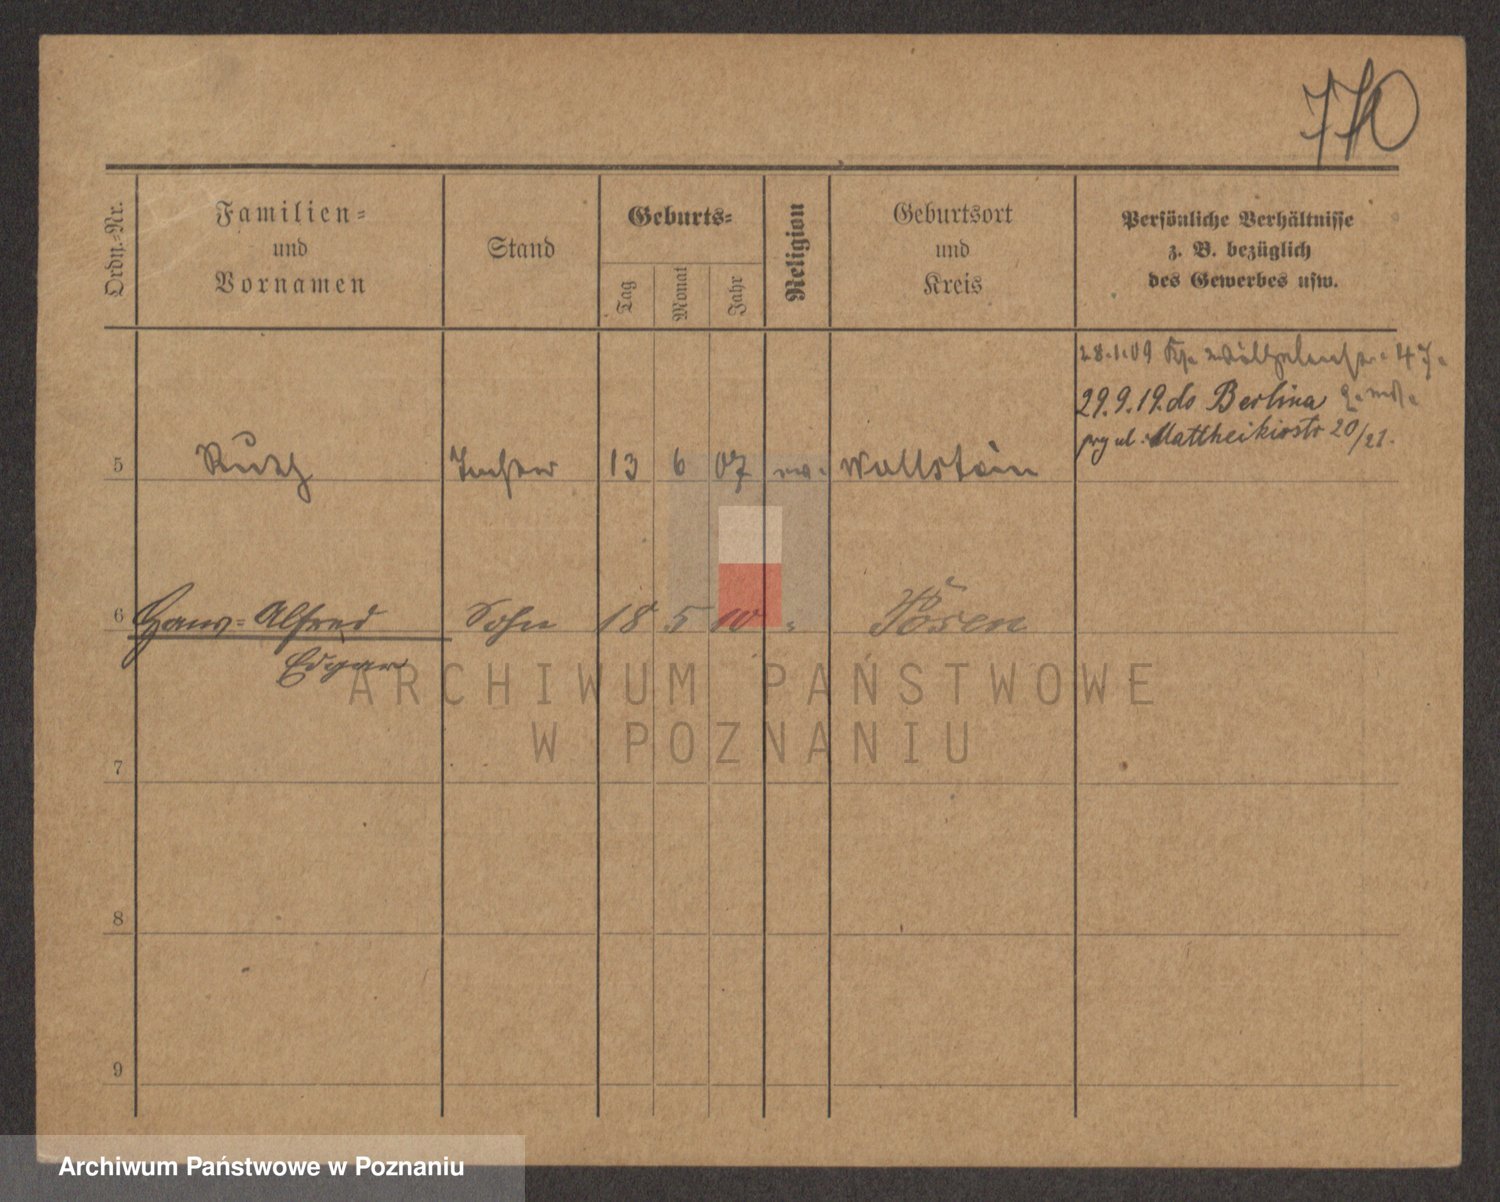 770
Ordn.-Nr.
Familien-
und
Vornamen
Stand
Geburts-
Tag
Monat
Jahr
Religion
Geburtsort
und
Kreis
Persönliche Verhältnisse
z. B. bezüglich
des Gewerbes usw.
28.1.09 Wilhelmstr. 47.
29.9.19. do Berlina
przy ul. Mattheikirstr 20/21.
5 Ruth Tochter 13 6 07 ev. Wollstein
6 Hans-Alfred Sohn 18 5 10 " Posen
Edgar
7
8
9
ARCHIWUM PAŃSTWOWE
W POZNANIU
Archiwum Państwowe w Poznaniu